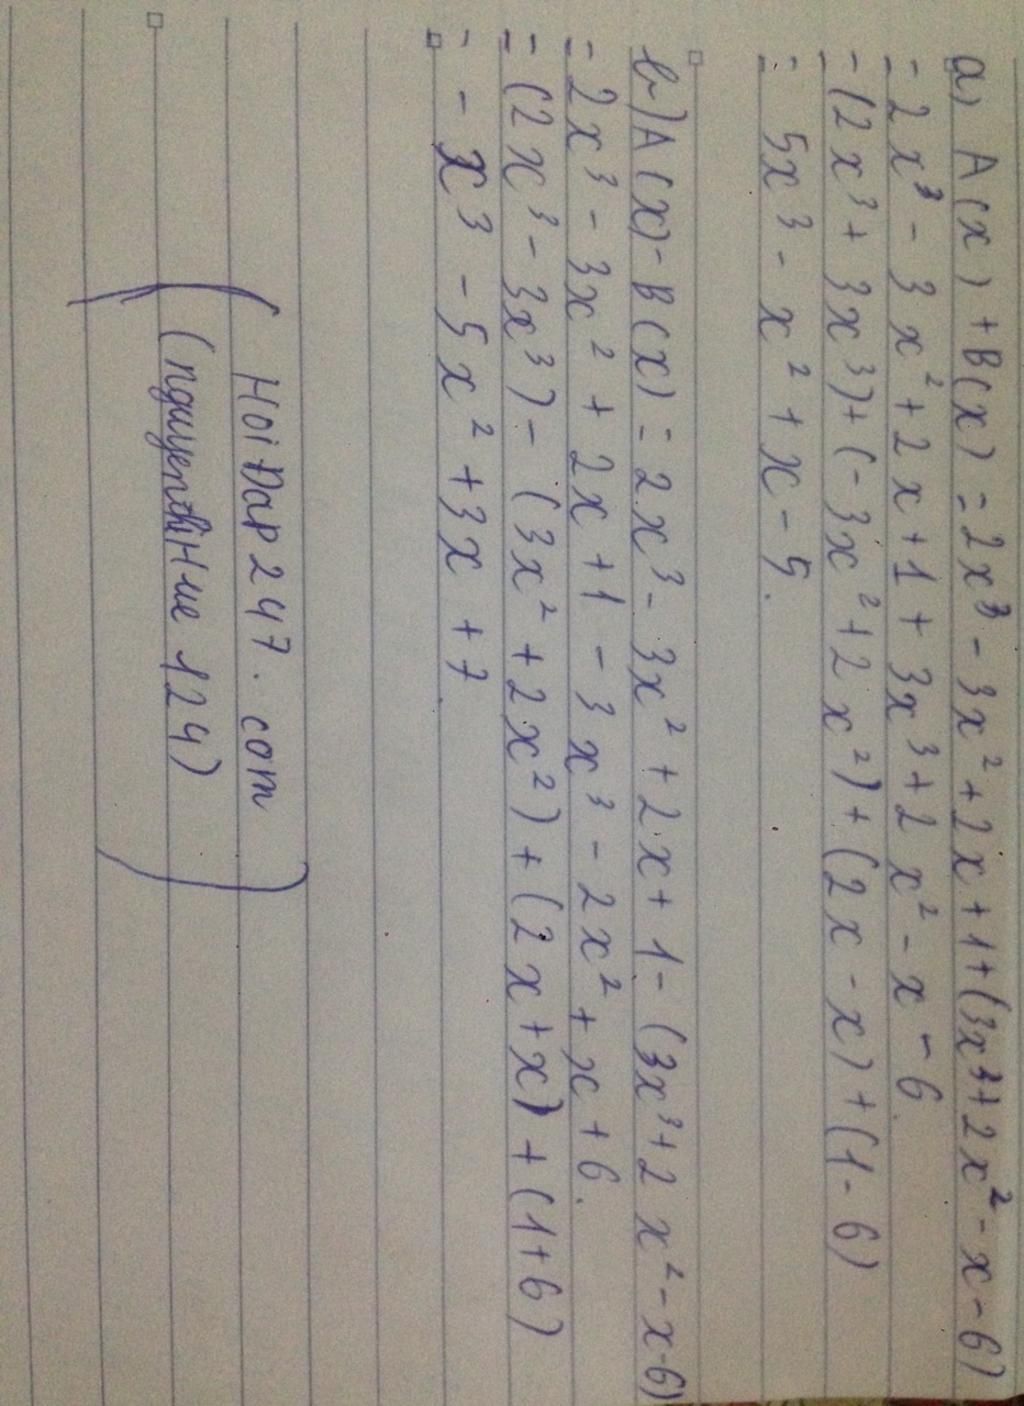 a) A(x) + B(x) = 2x³ - 3x² + 2x + 1 + (3x³ + 2x² - x - 6)
= 2x³ - 3x² + 2x + 1 + 3x³ + 2x² - x - 6.
= (2x³ + 3x³) + (-3x² + 2x²) + (2x - x) + (1 - 6)
= 5x³ - x² + x - 5.
b) A(x) - B(x) = 2x³ - 3x² + 2x + 1 - (3x³ + 2x² - x - 6)
= 2x³ - 3x² + 2x + 1 - 3x³ - 2x² + x + 6.
= (2x³ - 3x³) - (3x² + 2x²) + (2x + x) + (1 + 6)
= - x³ - 5x² + 3x + 7.
HoiĐap247.com
124)